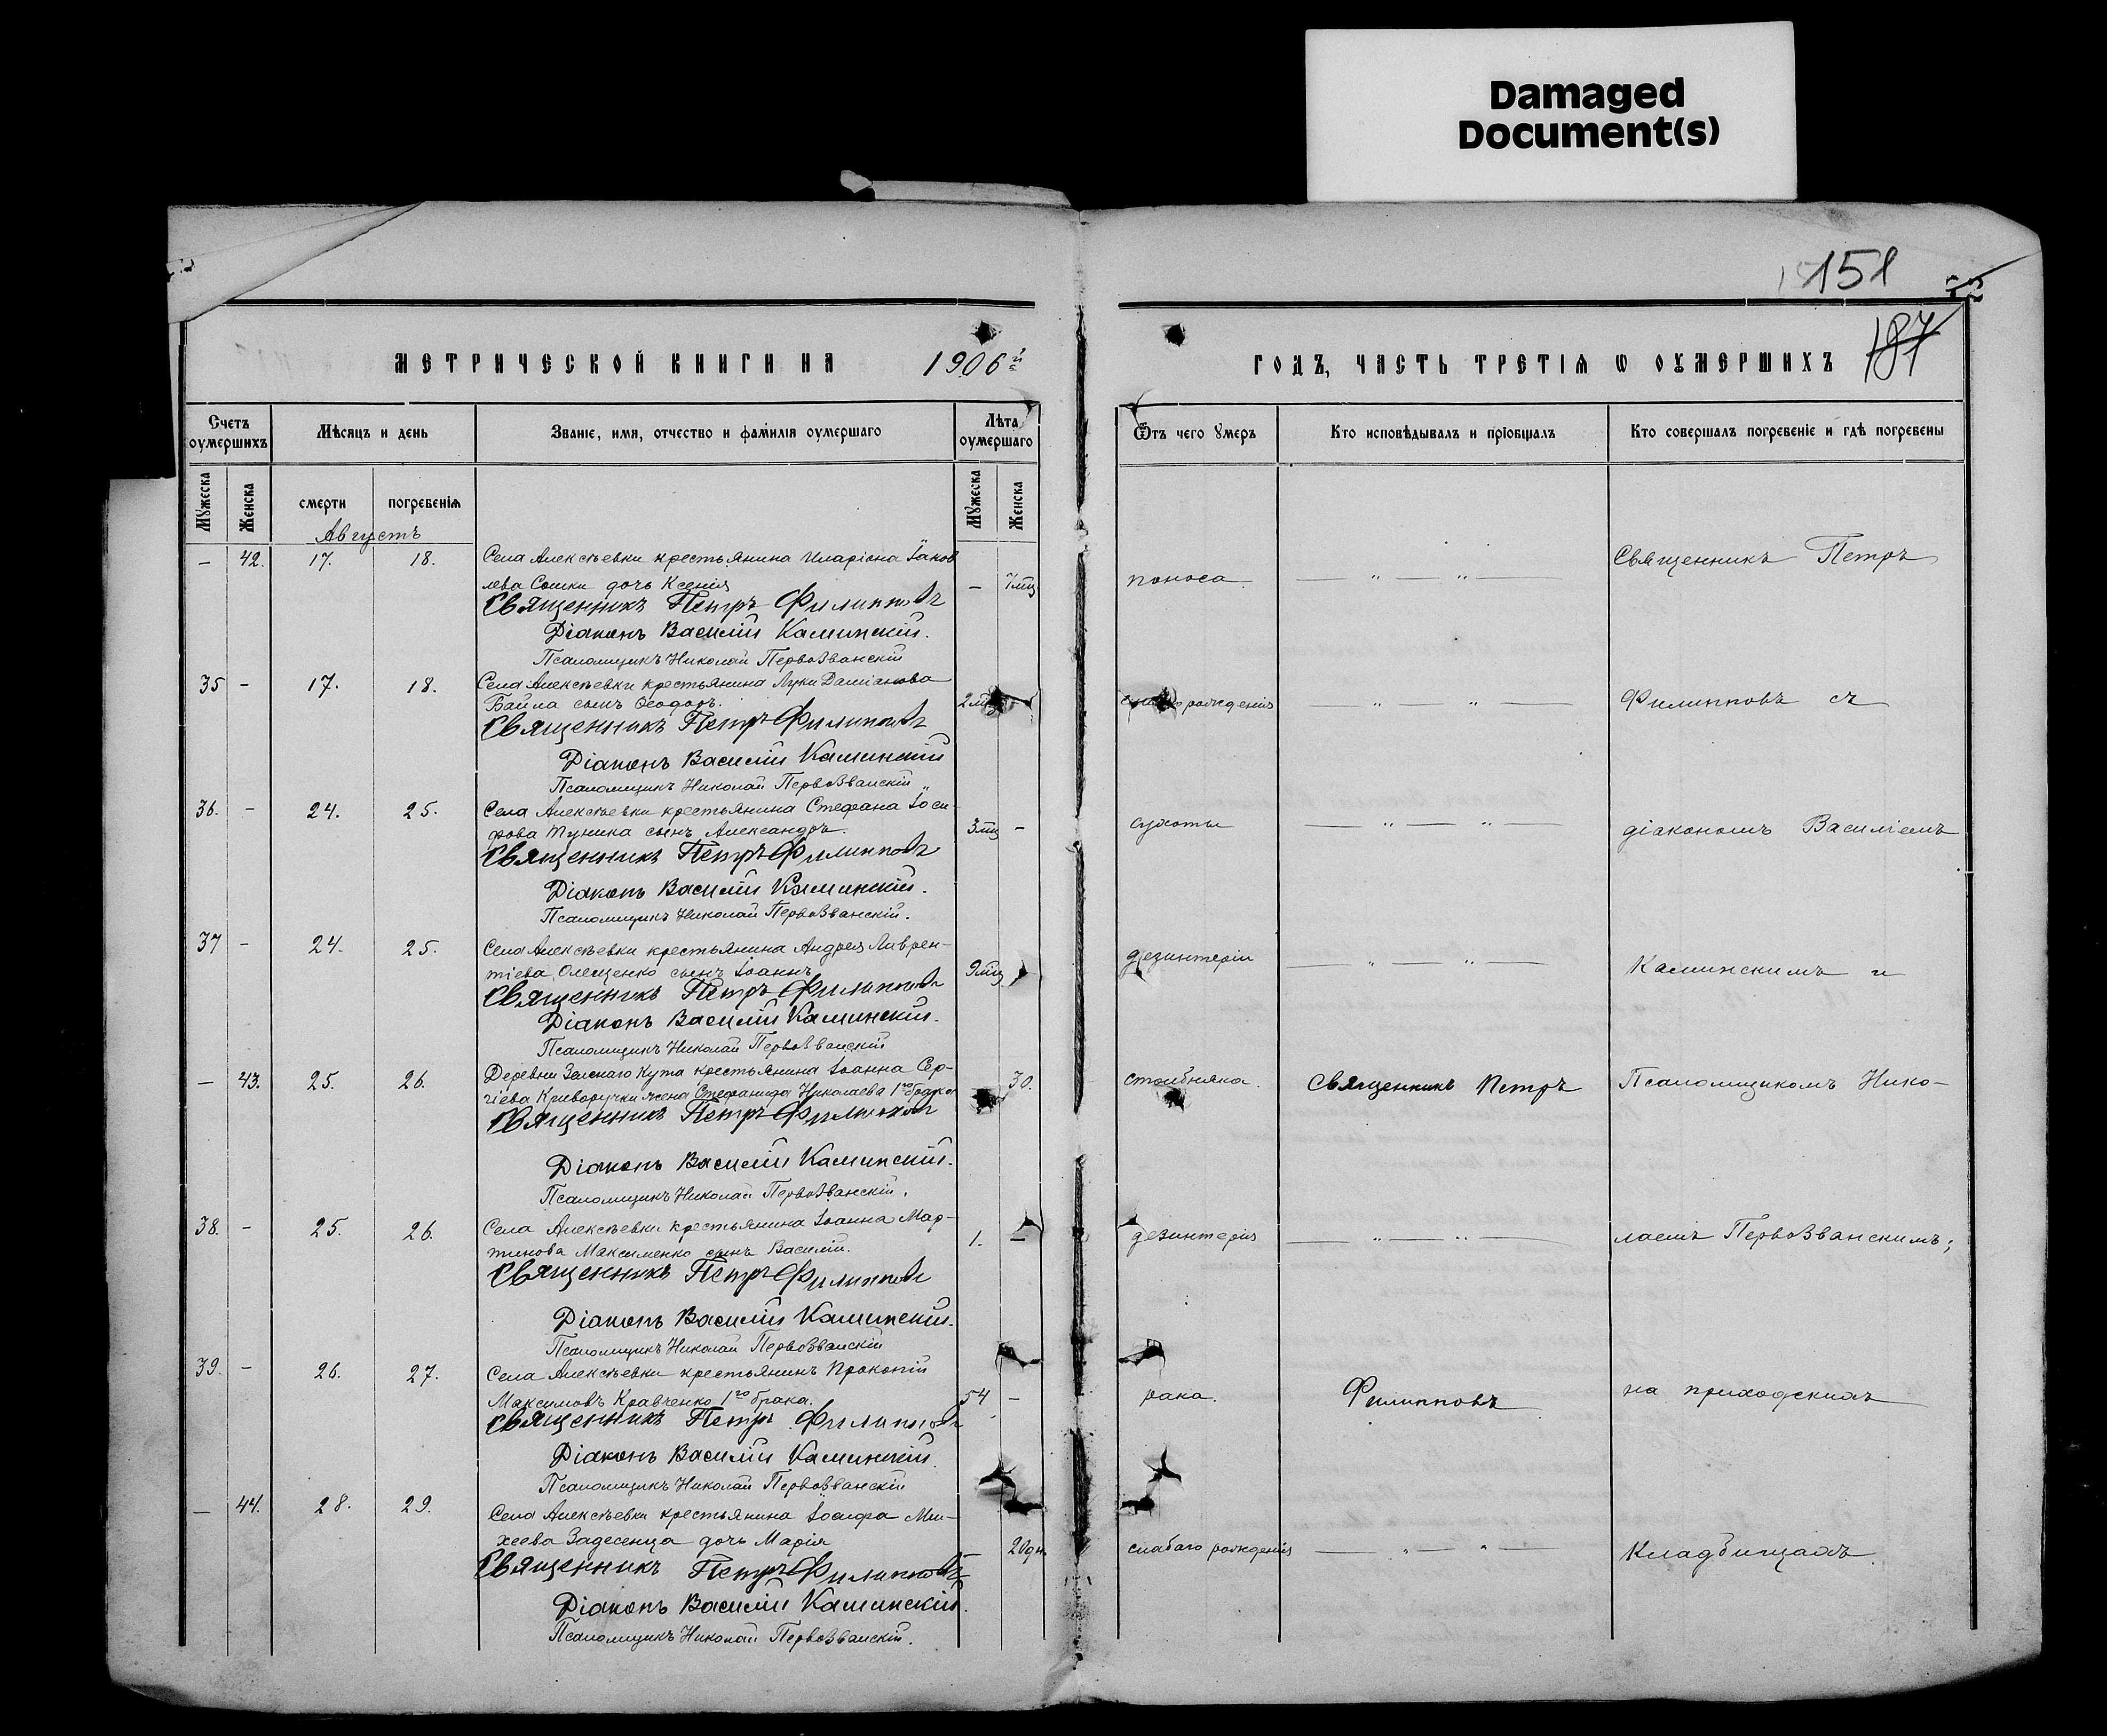 Damaged
Document(s)
151
187
МЕТРИЧЕСКОЙ КНИГИ НА 1906й
ГОДЪ, ЧАСТЬ ТРЕТІѦ Ѡ ОУМЕРШИХЪ
Счетъ оумершихъ
Мѣсяцъ и день
Званіе, имя, отчество и фамилія оумершаго
Лѣта оумершаго
Ѿтъ чего ѹмеръ
Кто исповѣдывалъ и пріобщалъ
Кто совершалъ погребеніе и гдѣ погребены
Мѹжеска
Женска
смерти
погребенія
Мѹжеска
Женска
Августъ
— 42. 17. 18. Села Алексѣевки крестьянина Иларіона Іаков
лева Сошки дочь Ксенія — 7 мц поноса — „ — „ — Священникъ Петръ
Священникъ Петръ Филипповъ
Діаконъ Василій Каминскій.
Псаломщикъ Николай Первозванскій
35 - 17. 18. Села Алексѣевки крестьянина Луки Даміанова
Байла сынъ Ѳеодоръ. 2 мц рожденія — „ „ — Филипповъ съ
Священникъ Петръ Филипповъ
Діаконъ Василій Каминскій
Псаломщикъ Николай Первозванскій
36. - 24. 25. Села Алексѣевки крестьянина Стефана Іоси-
фова Туника сынъ Александръ. 3 мц - сухоты — „ — „ — діакономъ Василіемъ
Священникъ Петръ Филипповъ
Діаконъ Василій Каминскій.
Псаломщикъ Николай Первозванскій.
37 - 24. 25. Села Алексѣевки крестьянина Андрея Лаврен-
тіева Олещенко сынъ Іоаннъ 9 мц дезинтеріи — „ — „ — Каминскимъ и
Священникъ Петръ Филипповъ
Діаконъ Василій Каминскій.
Псаломщикъ Николай Первозванскій
— 43. 25. 26. Деревни Зеленаго Кута крестьянина Іоанна Сер-
гіева Криворучки жена Стефанида Николаева 1го брака 30. столбняка. Священникъ Петръ Псаломщикомъ Нико-
Священникъ Петръ Филипповъ
Діаконъ Василій Каминскій.
Псаломщикъ Николай Первозванскій.
38. - 25. 26. Села Алексѣевки крестьянина Іоанна Мар-
тинова Максименко сынъ Василій. 1. — дезинтерія — „ — „ — лаемъ Первозванскимъ;
Священникъ Петръ Филипповъ
Діаконъ Василій Каминскій.
Псаломщикъ Николай Первозванскій
39. - 26. 27. Села Алексѣевки крестьянинъ Прокопій
Максимовъ Кравченко 1го брака. 54 - рака. Филипповъ на приходскихъ
Священникъ Петръ Филипповъ
Діаконъ Василій Каминскій.
Псаломщикъ Николай Первозванскій
— 44. 28. 29. Села Алексѣевки крестьянина Іосифа Ми-
хеева Задесенца дочь Марія 20 дн. слабаго рожденія — „ — „ — Кладбищахъ.
Священникъ Петръ Филипповъ
Діаконъ Василій Каминскій.
Псаломщикъ Николай Первозванскій.